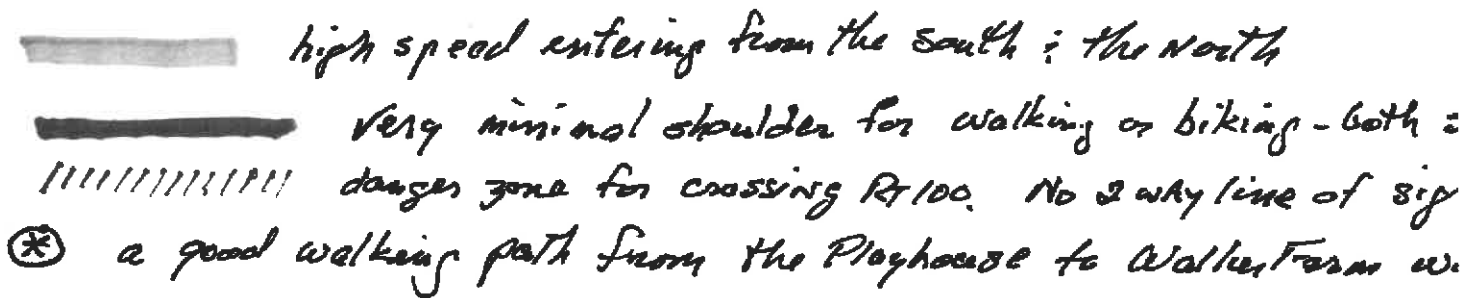 high speed entering from the south & the North
very minimal shoulder for walking or biking - both =
danger zone for crossing RT 100. No 2 way line of sig
a good walking path from the Playhouse to Walker Farm w.